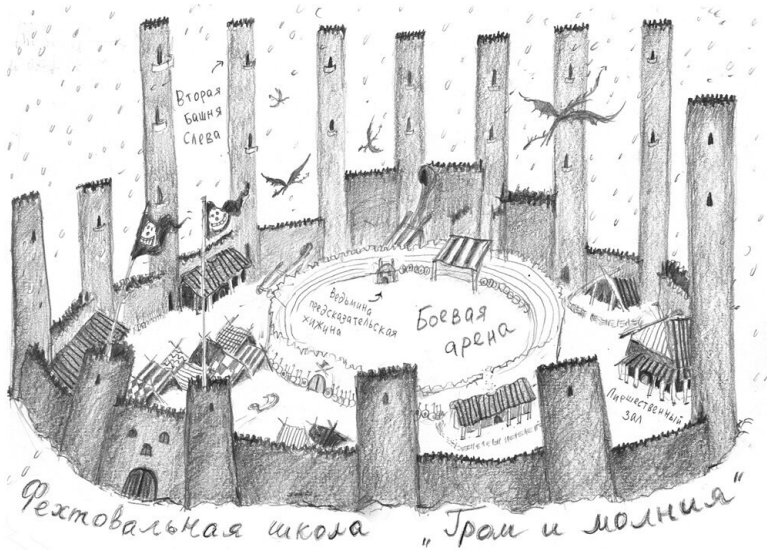 Вторая
Башня
Слева
Ведьмина
предсказательская
хижина
Боевая
арена
Пиршественный
зал
Фехтовальная школа „Гром и молния“